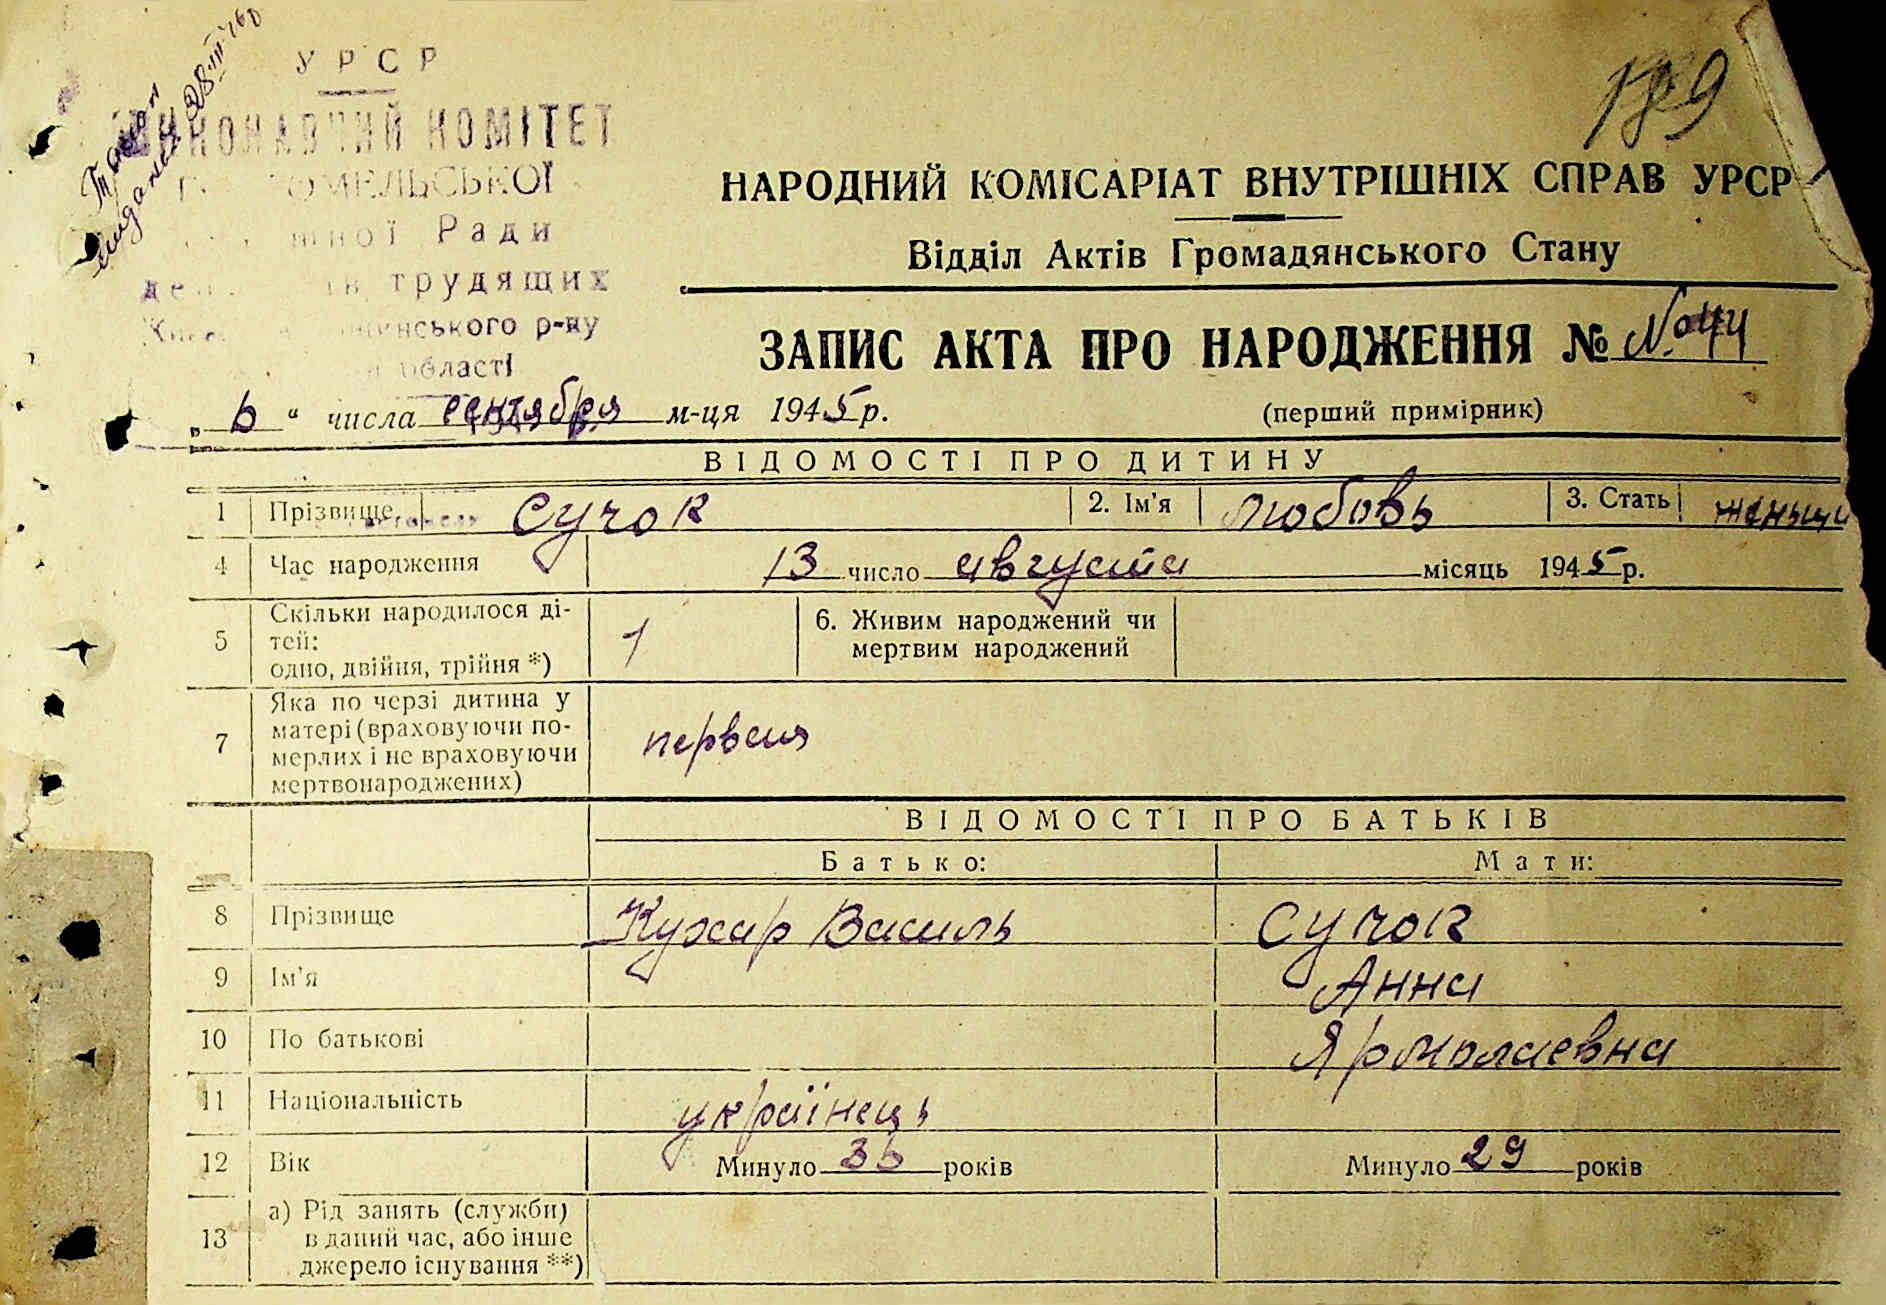 УРСР
ВИКОНАВЧИЙ КОМІТЕТ
Ради
трудящих
р-ну
області
189
НАРОДНИЙ КОМІСАРІАТ ВНУТРІШНІХ СПРАВ УРСР
Відділ Актів Громадянського Стану
ЗАПИС АКТА ПРО НАРОДЖЕННЯ № №44
„6“ числа сентября м-ця 1945 р.
(перший примірник)
ВІДОМОСТІ ПРО ДИТИНУ
1 Прізвище Сучок 2. Ім'я Любовь 3. Стать
4 Час народження 13 число августа місяць 1945 р.
5 Скільки народилося ді-
тей:
одно, двійня, трійня *) 1
6. Живим народжений чи
мертвим народжений
7 Яка по черзі дитина у
матері (враховуючи по-
мерлих і не враховуючи
мертвонароджених) первая
ВІДОМОСТІ ПРО БАТЬКІВ
Батько: Мати:
8 Прізвище Кухар Василь Сучок
9 Ім'я Анна
10 По батькові Ярмолаевна
11 Національність українець
12 Вік Минуло 36 років Минуло 29 років
13 а) Рід занять (служби)
в даний час, або інше
джерело існування **)